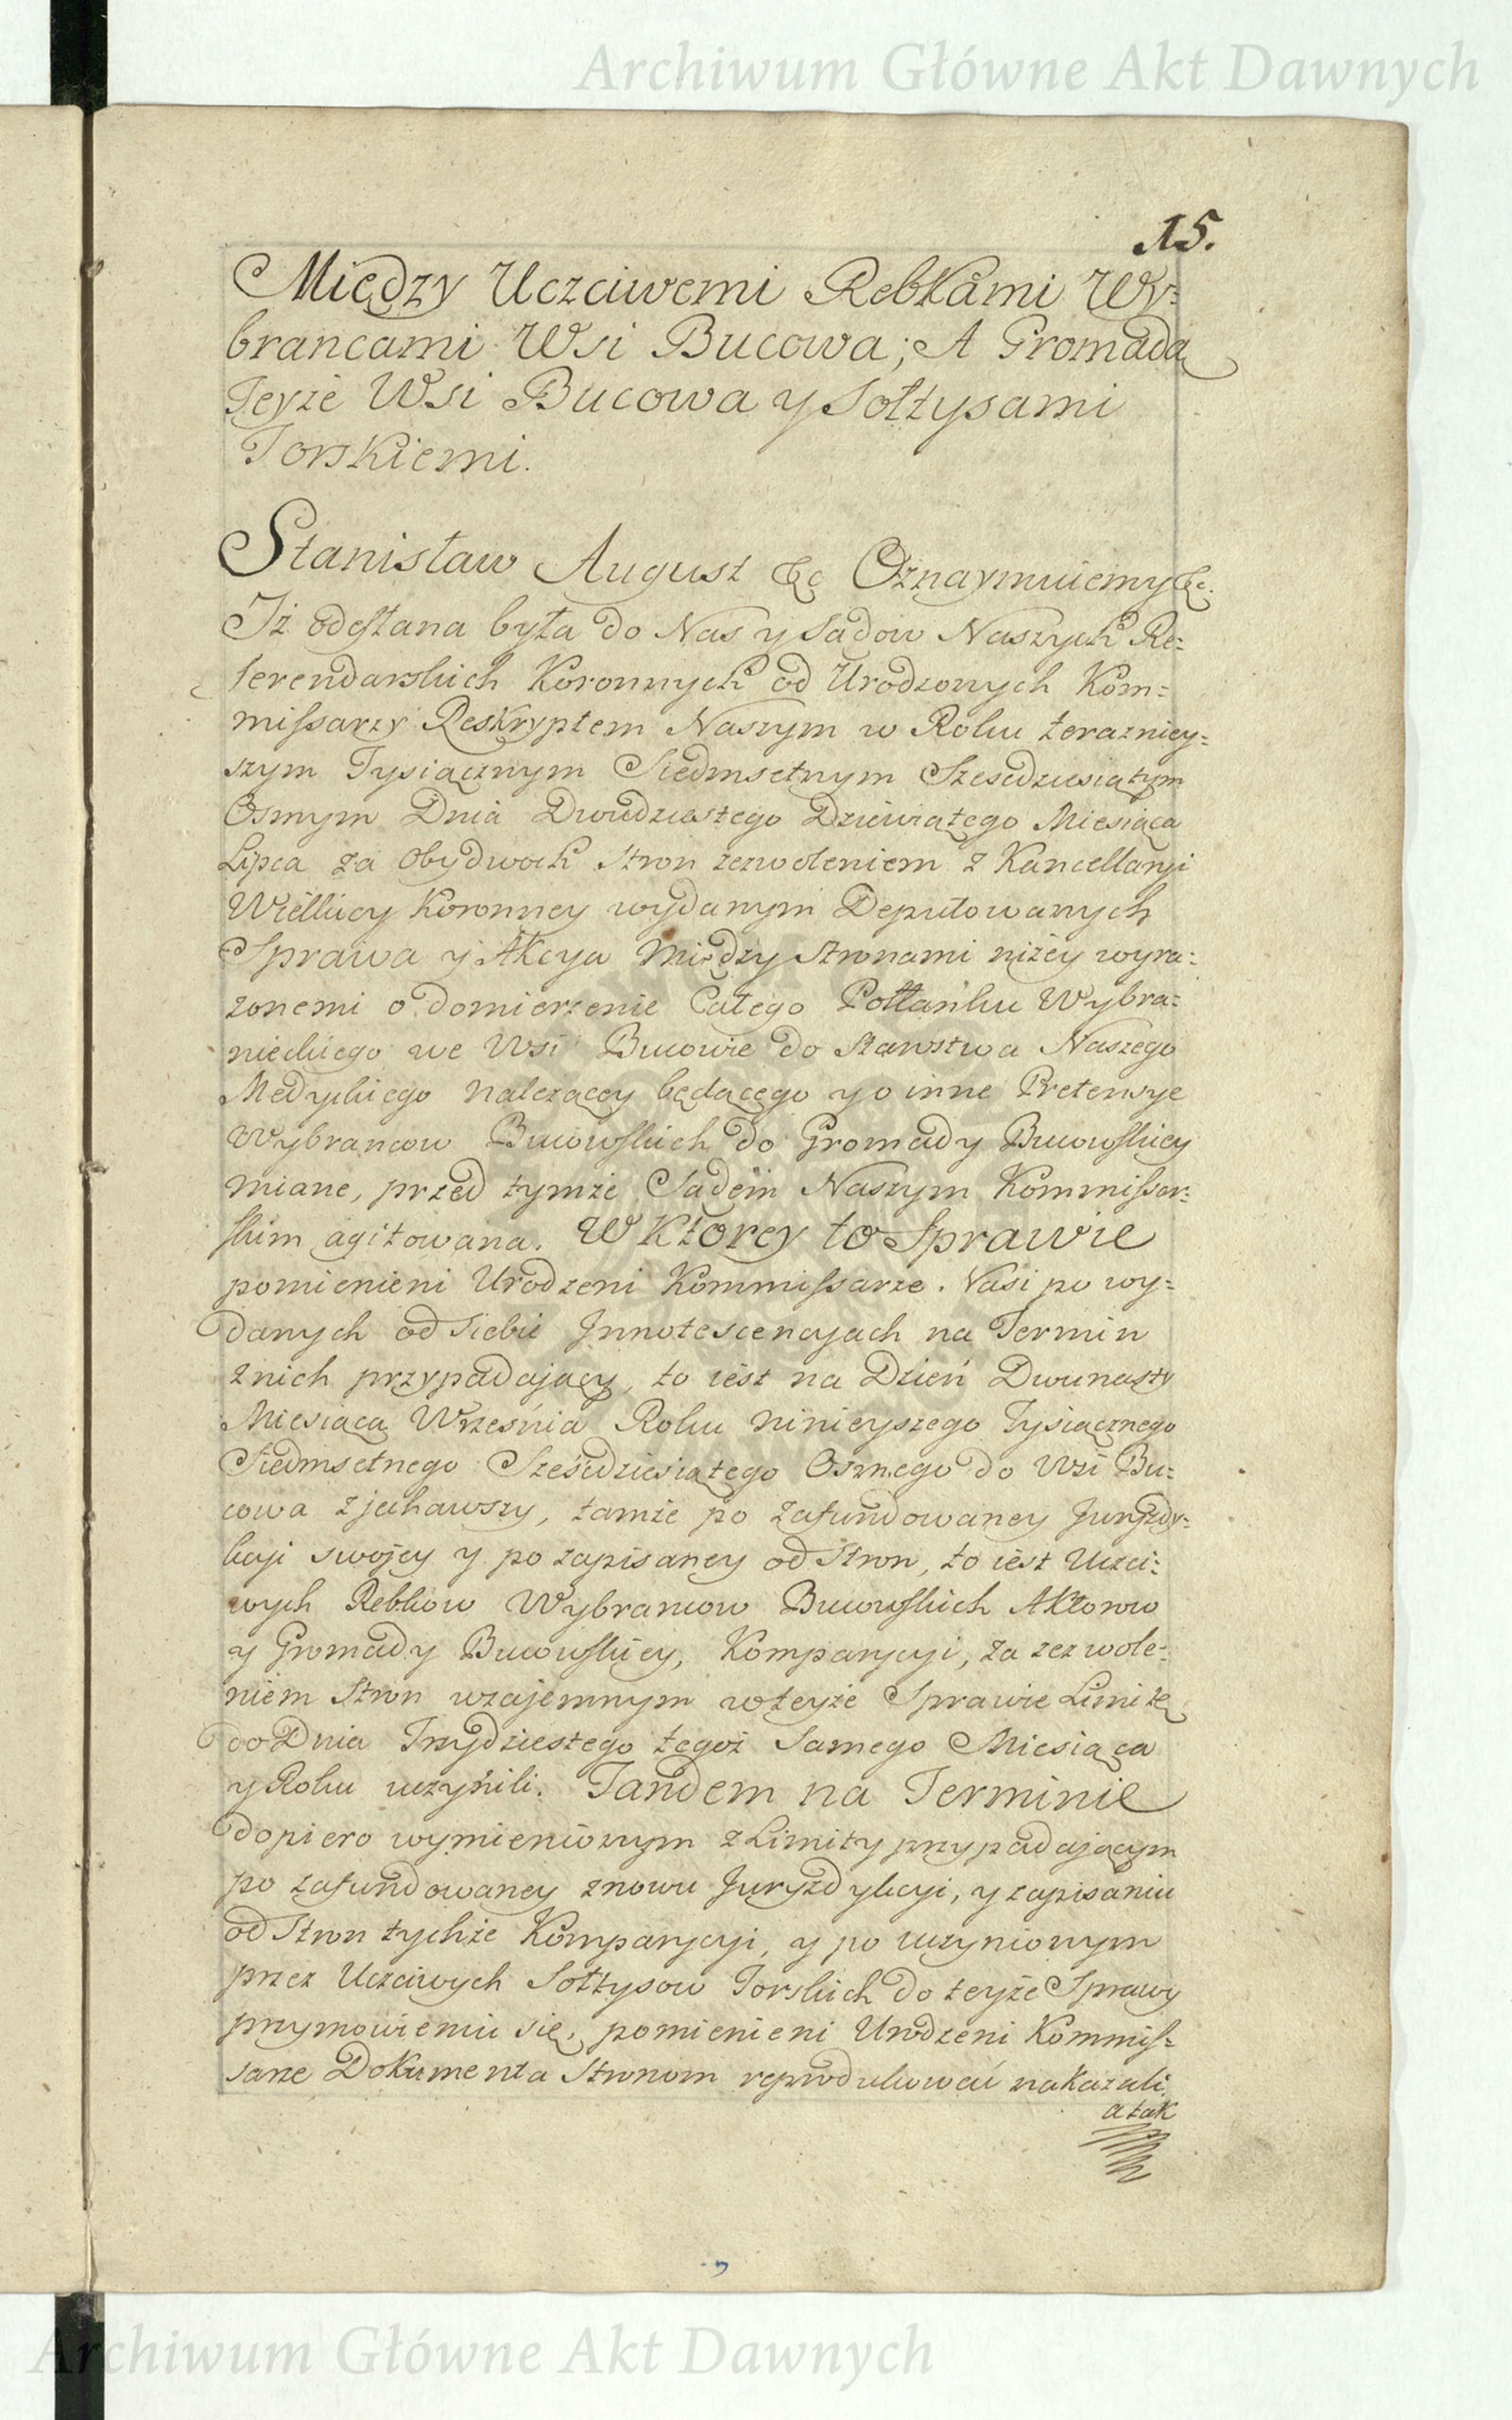 Archiwum Główne Akt Dawnych
15.
Między Uczciwemi Rebkami Wy-
brancami Wsi Bucowa; A Gromadą
Teyże Wsi Bucowa y Sołtysami
Torskiemi.
Stanisław August &c Oznaymuiemy &c.
Iż odesłana była do Nas y Sadow Naszych Re-
ferendarskich Koronnych od Urodzonych Kom-
missarzy Reskryptem Naszym w Roku teraznіey-
szym Tysiącznym Siedmsetnym Szescdziesiątym
Osmym Dnia Dwudziestego Dziewiątego Miesiąca
Lipca za Obydwoch Stron zezwoleniem z Kancellaryi
Wielkiey Koronney wydanym Deputowanych
Sprawa y Akcya między Stronami niżey wyra-
żonemi o domierzenie Całego Połłanku Wybra-
nieckiego we Wsi Bucowie do Starostwa Naszego
Medyckiego należącey będącego y o inne Pretensye
Wybrancow Bucowskich do Gromady Bucowskiey
miane, przed tymże Sądem Naszym Kommissar-
skim agitowana. W Ktorey to Sprawie
pomienieni Urodzeni Kommissarze Nasi po wy-
danych od siebie Innotescencyach na Termin
z nich przypadający, to iest na Dzień Dwunasty
Miesiąca Września Roku ninieyszego Tysiącznego
Siedmsetnego Sześcdziesiątego Osmego do Wsi Bu-
cowa zjechawszy, tamże po zafundowaney Juryzdy-
kcyi swojey y po zapisaney od Stron, to iest Uczci-
wych Rebkow Wybrancow Bucowskich Aktorow
y Gromady Bucowskiey, Komparycyi, za zezwole-
niem Stron wzajemnym w teyże Sprawie Limitę
do Dnia Trzydziestego tegoż Samego Miesiąca
y Roku uczynili. Tandem na Terminie
dopiero wymienionym z Limity przypadającym
po zafundowaney znowu Juryzdykcyi, y zapisaniu
od Stron tychże Komparycyi, y po uczynionym
przez Uczciwych Sołtysow Torskich do teyże Sprawy
przymowieniu się, pomienieni Urodzeni Kommis-
sarze Dokumenta Stronom reprodukować nakazali
a tak
Archiwum Główne Akt Dawnych